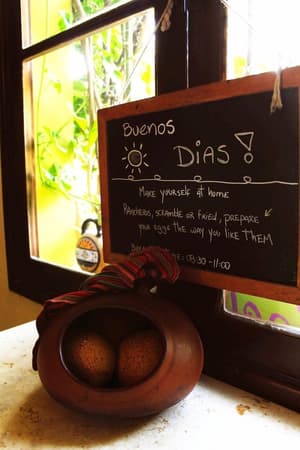 Buenos
Dias!
Make yourself at home
Rancheros, scramble or fried, prepare
your eggs the way you like them
08:30 - 11:00